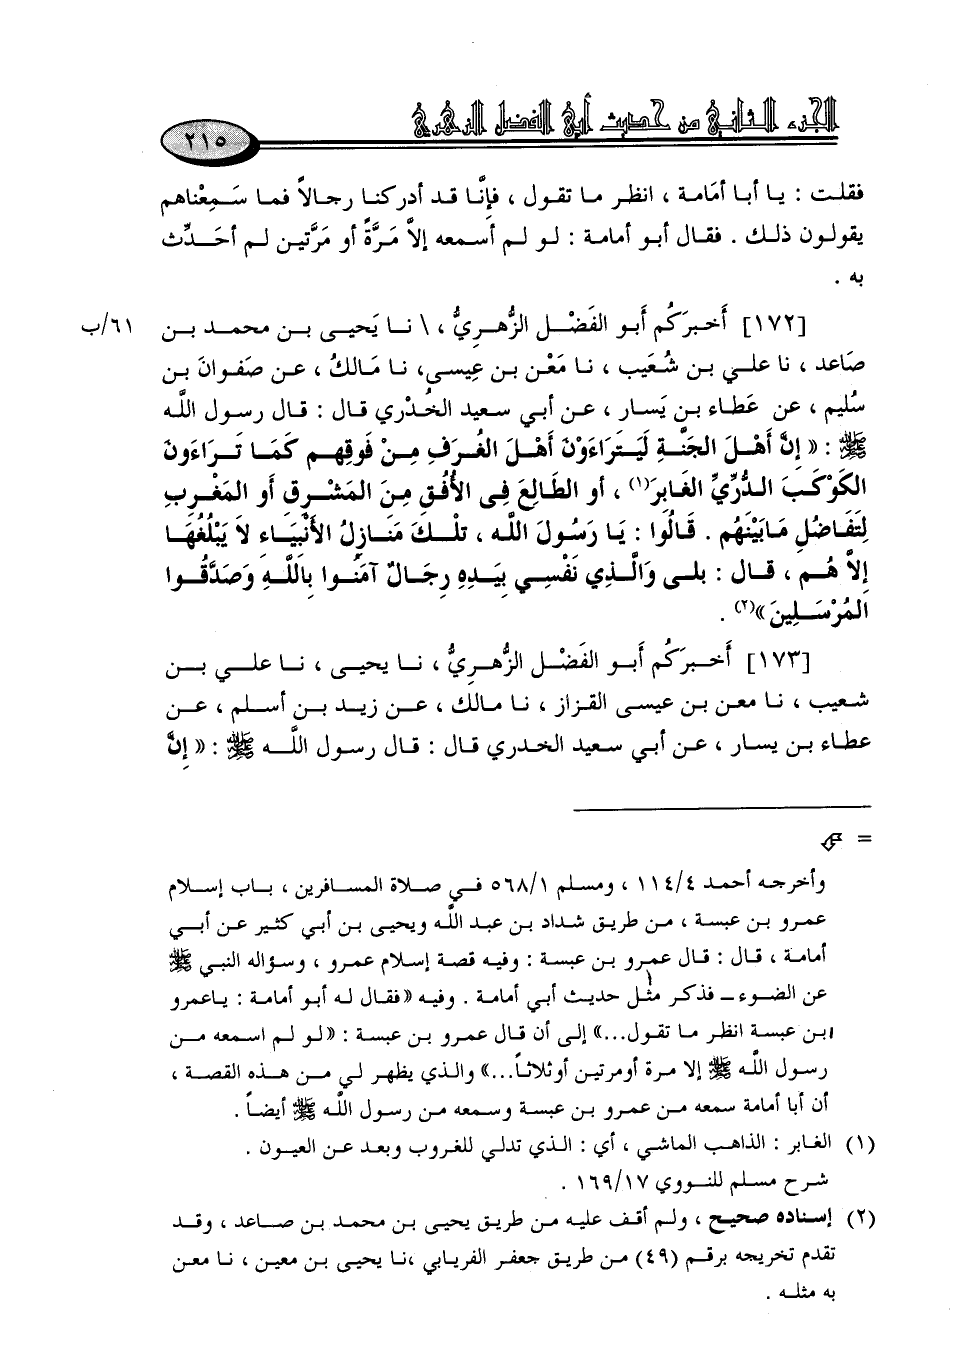 الجزء الثاني من حديث أبي الفضل الزهري
٢١٥
فقلت : يا أبا أمَامة ، انظر ما تقول ، فإنَّا قد أدركنا رجالاً فما سَمِعْناهم
يقولون ذلك . فقال أبو أمامة : لو لم أسمعه إلاَّ مَرَّةً أو مَرَّتين لم أحَدِّث
به .
[١٧٢] أَخبرَكُم أَبو الفَضْل الزُّهرِيُّ ، \ نا يَحيى بن محمد بن
٦١/ب
صَاعد ، نا علي بن شُعَيب ، نا مَعْن بن عِيسى، نا مَالكُ ، عن صَفوانَ بن
سُليم ، عن عَطاء بن يَسار ، عن أبي سعيد الخُدْري قال : قال رسول الله
ﷺ : « إنَّ أَهْلَ الجَنَّةِ لَيَتراءَوْنَ أَهْلَ الغُرَفِ مِنْ فَوقِهم كَمَا تَراءَون
الكَوْكَبَ الدُّرِّيِّ الغَابرَ(١) ، أو الطَالِعَ فِى الأُفُقِ مِنَ المَشْرِقِ أو المَغْربِ
لِتَفَاضُلِ مَابَيْنَهُم . قَالُوا : يَا رَسُولَ الله ، تلْكَ مَنَازِلُ الأَنْبيَاء لاَ يَبْلُغُهَا
إلاَّ هُم ، قال : بلى وَالَّذي نَفْسِي بيَدِهِ رِجَالٌ آمَنُوا باللَّهِ وَصَدَّقُوا
المُرْسَلِينَ»(٢) .
[١٧٣] أَخبرَكُم أَبو الفَضْل الزُّهرِيُّ ، نا يحيى ، نا علي بن
شعيب ، نا معن بن عيسى القزاز ، نا مالك ، عن زيد بن أسلم ، عن
عطاء بن يسار ، عن أبي سعيد الخدري قال : قال رسول الله ﷺ : « إنَّ
=
وأخرجه أحمد ١١٤/٤ ، ومسلم ٥٦٨/١ في صلاة المسافرين ، باب إسلام
عمرو بن عبسة ، من طريق شداد بن عبد الله ويحيى بن أبي كثير عن أبي
أمامة ، قال : قال عمرو بن عبسة : وفيه قصة إسلام عمرو ، وسؤاله النبي ﷺ
عن الضوء ـ فذكر مثل حديث أبي أمامة . وفيه «فقال له أبو أمامة : ياعمرو
ابن عبسة انظر ما تقول...» إلى أن قال عمرو بن عبسة : «لو لم اسمعه من
رسول الله ﷺ إلا مرة أومرتين أوثلاثاً...» والذي يظهر لي من هذه القصة ،
أن أبا أمامة سمعه من عمرو بن عبسة وسمعه من رسول الله ﷺ أيضاً .
(١) الغابر : الذاهب الماشي ، أي : الذي تدلي للغروب وبعد عن العيون .
شرح مسلم للنووي ١٦٩/١٧ .
(٢) إسناده صحيح ، ولم أقف عليه من طريق يحيى بن محمد بن صاعد ، وقد
تقدم تخريجه برقم (٤٩) من طريق جعفر الفريابي ،نا يحيى بن معين ، نا معن
به مثله .